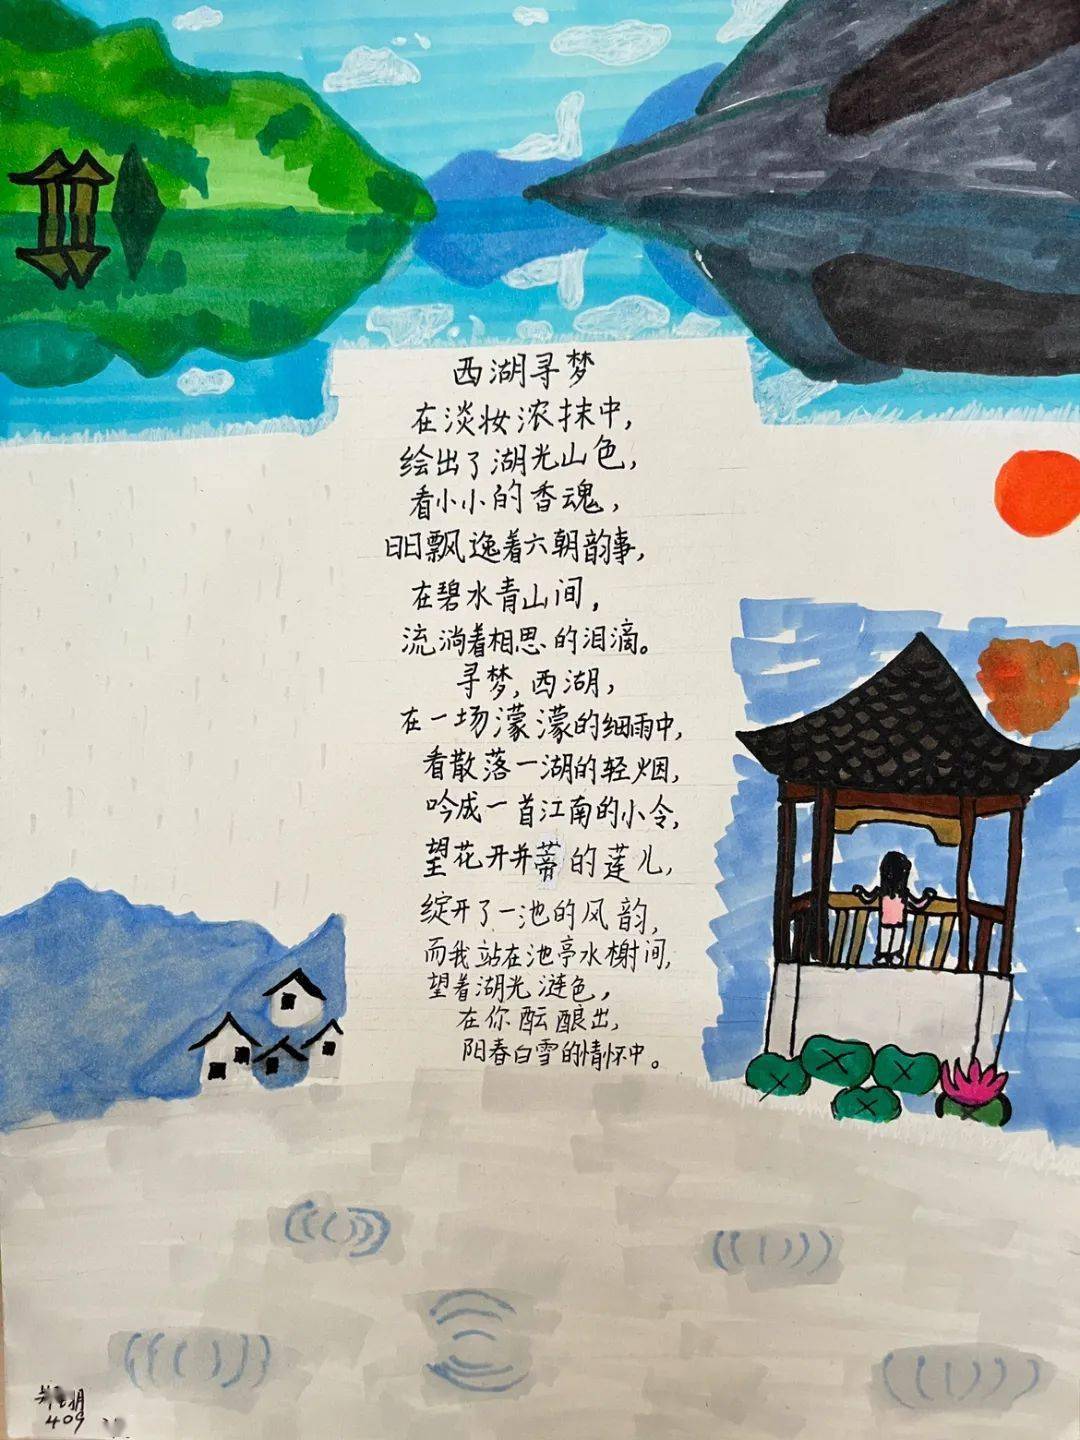 西湖寻梦
在淡妆浓抹中，
绘出了湖光山色，
看小小的香魂，
日日飘逸着六朝韵事，
在碧水青山间，
流淌着相思的泪滴。
寻梦，西湖，
在一场濛濛的细雨中，
看散落一湖的轻烟，
吟成一首江南的小令，
望花开并蒂的莲儿，
绽开了一池的风韵，
而我站在池亭水榭间，
望着湖光涟色，
在你酝酿出，
阳春白雪的情怀中。
409